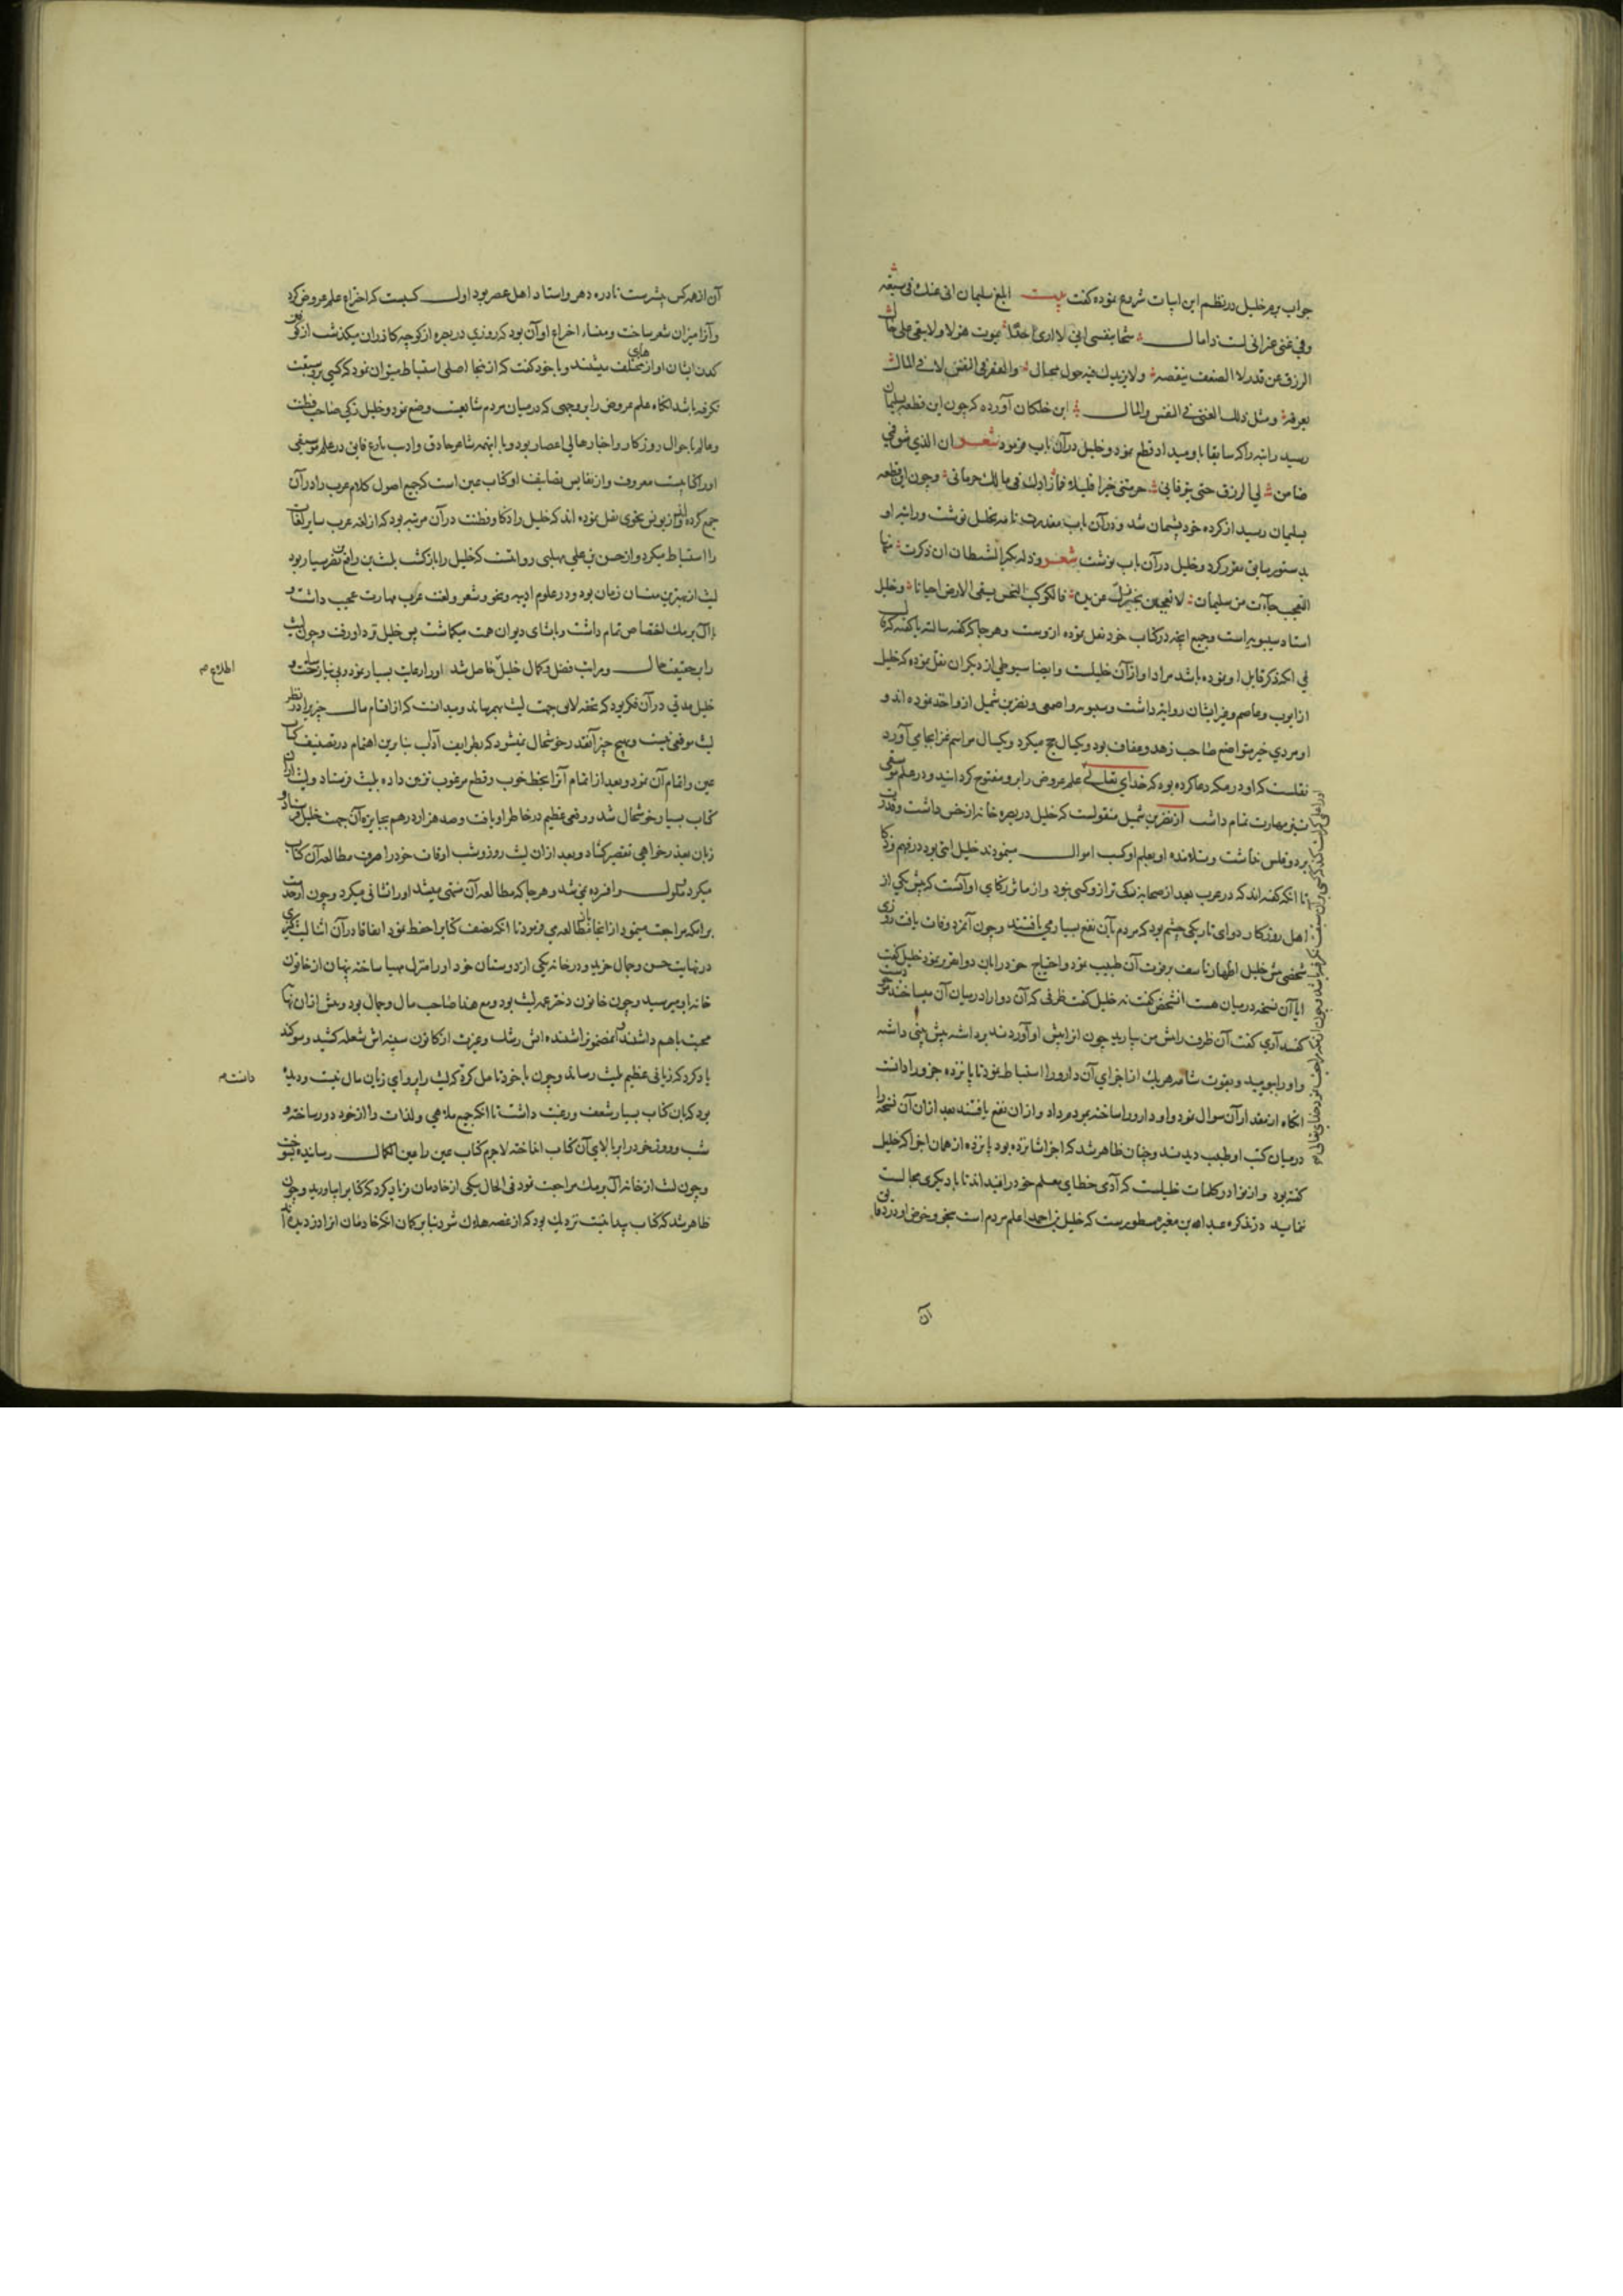 جواب پرم خلیل در نظم این ابیات شروع نموده گفت بیت ابلغ سلیمان انی عنک فی سعة
وفی غنی غیر انی لست ذا مال شحا بنفسی انی لا اری احدا یموت هزلا ولا یبقی علی حال
الرزق عن قدر لا الضعف ینقصه ولا یزیدک فیه حول محتال والفقر فی النفس لا فی المال
نعرفه ومثل ذلک الغنی فی النفس والمال ابن خلکان آورده که چون این قطعه بسلیمان
رسید راتبه را که سابقا باو میداد قطع نمود و خلیل در آن باب فرمود شعر ان الذی شق فمی
ضامن لی الرزق حتی یتوفانی حرمتنی خیرا قلیلا فما زادک فی مالک حرمانی و چون این قطعه
بسلیمان رسید از کرده خود پشیمان شد و در آن باب معذرت نامه بخلیل نوشت و راتبه او
بدستور سابق مقرر کرد و خلیل در آن باب نوشت شعر وزلة یکثر الشیطان ان ذکرت منها
التعجب جاءت من سلیمانا لا تعجبن بخیر زل عن یده فالکوکب النحس یسقی الارض احیانا و خلیل
استاد سیبویه است و جمیع آنچه در کتاب خود نقل نموده از وست و هر جا که گفته سالته یا گفته که قال
بی آنکه ذکر قایل او نموده باشد مراد او از آن خلیلست و ایضا سیوطی از دیگران نقل نموده که خلیل
از ایوب و عاصم و غیر ایشان روایت داشت و سیبویه و اصمعی و نضر بن شمیل از و اخذ نموده اند و
او مردی خیر متواضع صاحب زهد و عفاف بود و یکسال حج میکرد و یکسال مراسم غزا بجای آورد
نقلست که او در مکه دعا کرده بود که خدای تعالی علم عروض را برو مفتوح گرداند و در علم موسیقی
نیز مهارت تمام داشت از نضر بن شمیل منقولست که خلیل در بصره خانه از خص داشت و قدرت
بر دو فلس نداشت و تلامذه او بعلم او کسب اموال مینمودند خلیل آیتی بود در فهم و ذکا
تا آنکه گفته اند که در عرب بعد از صحابه زکی تر از و کسی نبود و از مآثر زکای او آنست که پیش یکی از
اهل روزگار دوای تاریکی چشم بود که مردم بآن نفع بسیار می یافتند و چون آنمرد وفات یافت روزی
شخصی پیش خلیل اظهار تاسف بر فوت آن طبیب نمود و احتیاج خود را بآن دوا تقریر نمود خلیل گفت
ایا آن نسخه در میان هست انشخص گفت نه خلیل گفت ظرفی که آن دوا را در میان آن میساخت موجود است
گفتند آری گفت آن ظرف را پیش من بیارید چون از برایش او آوردند برداشته پیش بینی داشته
و او را بویید و بقوت شامه هر یک از اجزای آن دارو را استنباط نمود تا پانزده جزو را دانست
انگاه از مقدار آن سوال نمود و او دارو را ساخته بمردم داد و از ان نفع یافتند بعد از ان آن نسخه را
در میان کتب او طبیب دیدند و چنان ظاهر شد که اجزا شانزده بود پانزده از همان اجزا که خلیل
گفته بود و از نوادر کلمات خلیلست که آدمی خطای معلم خود را نمیداند تا با دیگری مجالست
نماید در تذکره عبد الله بن مغیره مسطورست که خلیل بن احمد اعلم مردم است بنحو و خوض او در دقایق
آن
آن از همه کس بیشرست نادره دهر و استاد اهل عصر بود اول کسیست که اختراع علم عروض کرد
و آنرا میزان شعر ساخت و منشاء اختراع او آن بود که روزی در بصره از کوچه گازران میگذشت از کوفتن
کدن ایشان آوازهای مختلف میشنید و با خود گفت که از اینجا اصلی استنباط میتوان نمود که کسی برو سبقت
نگرفته باشد انگاه علم عروض را بر وجهی که در میان مردم شایعست وضع نمود و خلیل زکی صاحب فطنت
و عالم باحوال روزگار و اخبار اهالی اعصار بود و با اینهمه شاعر حاذق و ادیب بارع فایق در علم موسیقی
او را کتابیست معروف و از نفایس تصانیف او کتاب عین است که جمیع اصول کلام عرب را در آن
جمع کرده و از یونس نحوی نقل نموده اند که خلیل را ذکا و فطنت در آن مرتبه بود که از لغت عرب سایر لغات
را استنباط میکرد و از حسن بن علی مهلبی روایتست که خلیل را بازگشت بلیث بن رافع بن نصر سیار بود
لیث از بهترین منشیان زمان بود و در علوم ادبیه و نحو و شعر و لغت عرب مهارت عجیب داشت و
با آل برمک اختصاص تمام داشت و بانشای دیوان همت میگماشت پس خلیل نزد او رفت و چون لیث
را بر حقیقت حال و مراتب فضل و کمال خلیل حاصل شد او را رعایت بسیار نمود و بی نیاز ساخت و
اطلاع م
خلیل مدتی در آن فکر بود که تحفه لایق جهت لیث بهم رساند و میدانست که از اقسام مال چیزی را در نظر
لیث موقعی نیست و بهیچ چیز آنقدر خوشحال نمیشود که بطرایف آداب بنا برین اهتمام در تصنیف کتاب
عین و اتمام آن نمود و بعد از اتمام آنرا بخط خوب و قطع مرغوب تزیین داده بلیث فرستاد و لیث از آن
کتاب بسیار خوشحال شد و وقعی عظیم در خاطر او یافت و صد هزار درهم بجایزه آن جهت خلیل فرستاد و
زبان بعذر خواهی تقصیر گشاد و بعد از ان لیث روز و شب اوقات خود را صرف مطالعه آن کتاب
میکرد و ملول و افسرده نمی شد و هر جا که مطالعه آن منتهی میشد او را نشانی میکرد و چون از خدمت
برامکه مراجعت مینمود از انجا باز مطالعه می فرمود تا آنکه نصف کتاب را حفظ نمود اتفاقا در آن اثنا لیث کنیزکی
در نهایت حسن و جمال خرید و در خانه یکی از دوستان خود او را منزل مهیا ساخته پنهان از خاتون
خانه او میرسید و چون خاتون دختر عم لیث بود و مع هذا صاحب مال و جمال بود و پیش از ان نهایت
محبت با هم داشتند مضمون را شنیده آتش رشک و غیرت از کانون سینه اش شعله کشید و سوگند
یاد کرد که زیانی عظیم بلیث رساند و چون با خود تامل کرد که لیث را پروای زیان مال نیست و دیده
دانست م
بود که بآن کتاب بسیار شعف و رغبت داشت تا آنکه جمیع ملاهی و لذات را از خود دور ساخته و
شب و روز خود را بر بالای آن کتاب انداخته لاجرم کتاب عین را عین الکمال رسانیده بسوخت
و چون لیث از خانه آل برمک مراجعت نمود فی الحال یکی از خادمان فریاد کرد که کتاب را بیاورید و چون
ظاهر شد که کتاب پیدا نیست نزدیک بود که از غصه هلاک شود بنابر گمان آنکه خادمان انرا دزدیده اند